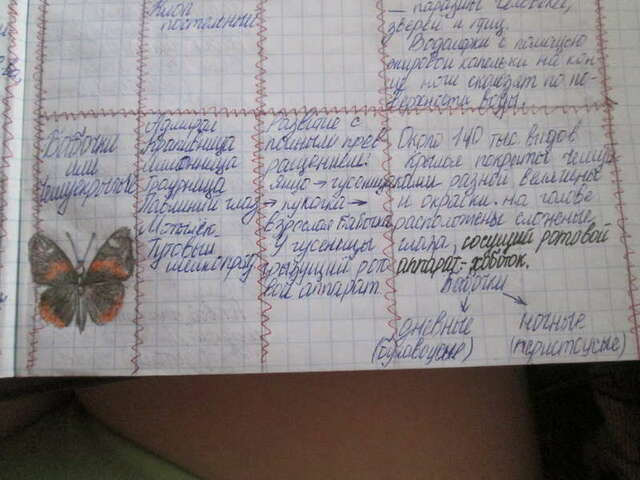 Клоп
постельный
— паразиты человека,
зверей и птиц.
Водомерки с помощью
жировой капельки на кон-
це ноги скользят по по-
верхности воды.
Бабочки
или
Чешуекрылые
Адмирал
Капустница
Лимонница
Траурница
Павлиний глаз
Мотылёк
Тутовый
шелкопряд
Развитие с
полным прев-
ращением:
яйцо → гусеница
→ куколка →
взрослая бабочка
У гусеницы
грызущий рото-
вой аппарат.
Около 140 тыс. видов
крылья покрыты чешуй-
ками разной величины
и окраски. На голове
расположены сложные
глаза, сосущий ротовой
аппарат-хоботок.
Бабочки
дневные
(булавоусые)
ночные
(перистоусые)